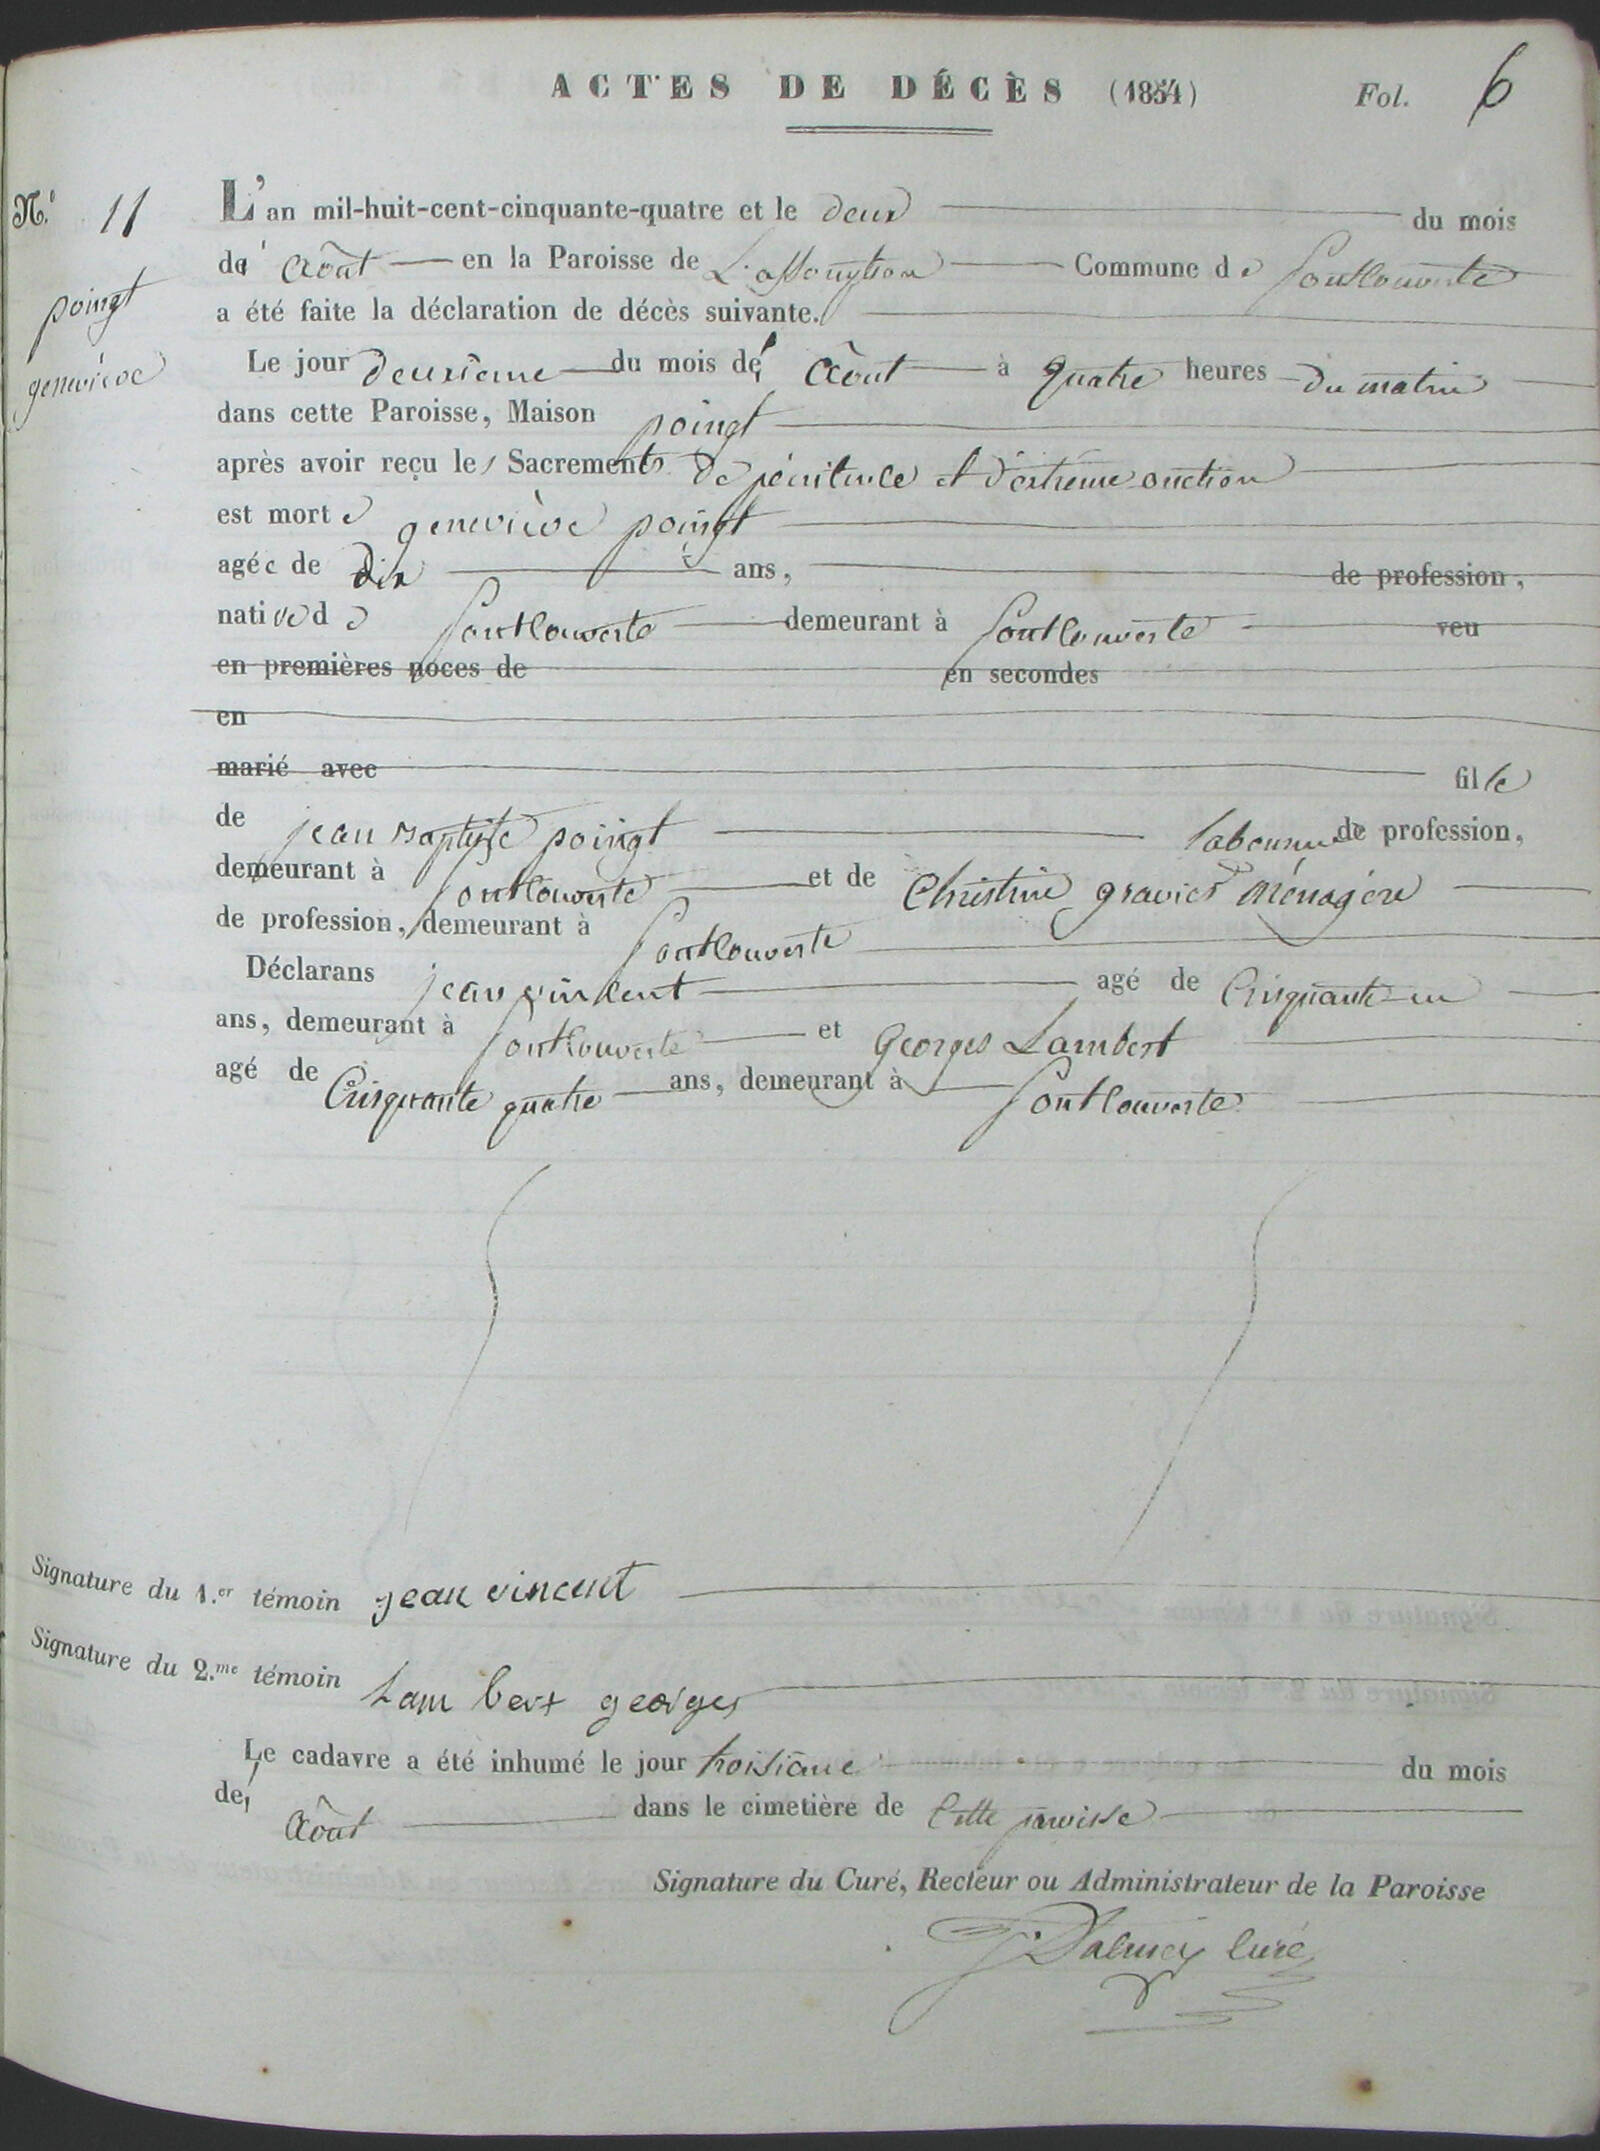 ACTES DE DÉCÈS (1854) Fol. 6
N.º 11 L'an mil-huit-cent-cinquante-quatre et le deux du mois
d' Août en la Paroisse de L'assomption Commune de Pontcouverte
poingt
a été faite la déclaration de décès suivante.
geneviève
Le jour deuxième du mois d' Août à quatre heures du matin
dans cette Paroisse, Maison poingt
après avoir reçu les Sacrements de pénitence et d'extrême onction
est morte geneviève poingt
agée de dix ans, de profession,
native de fontcouverte demeurant à fontcouverte veu
en premières noces de en secondes
en
marié avec fille
de jean Baptiste poingt laboureur de profession,
demeurant à fontcouverte et de Christine gravier ménagère
de profession, demeurant à fontcouverte
Déclarans jean vincent agé de Cinquante-un
ans, demeurant à fontcouverte et Georges Lambert
agé de Cinquante quatre ans, demeurant à fontcouverte
Signature du 1.er témoin jean vincent
Signature du 2.me témoin Lambert georges
Le cadavre a été inhumé le jour troisième du mois
d' Août dans le cimetière de cette paroisse
Signature du Curé, Recteur ou Administrateur de la Paroisse
curé